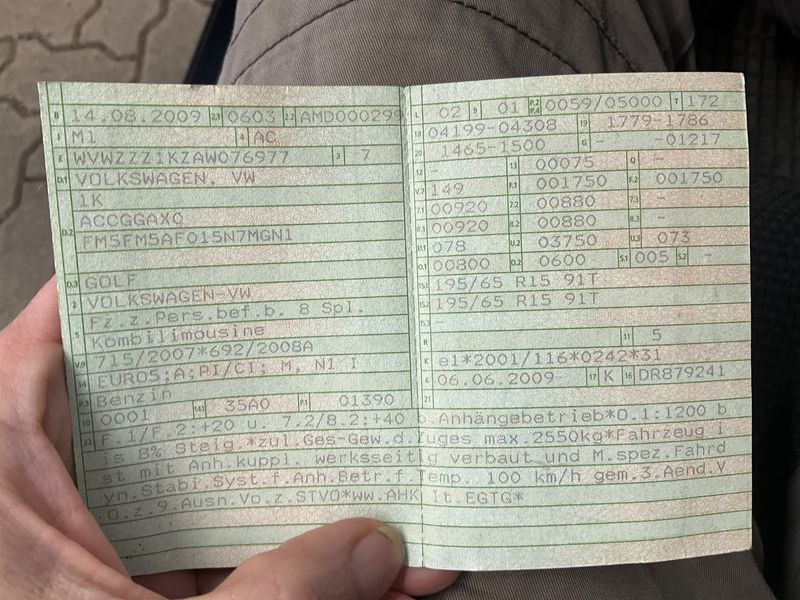 B 14.08.2009 2.1 0603 2.2 AMD000299
J M1 4 AC
E WVWZZZ1KZAW076977 3 7
D.1 VOLKSWAGEN, VW
1K
D.2 ACCGGAX0
FM5FM5AF015N7MGN1
D.3 GOLF
2 VOLKSWAGEN-VW
5 Fz.z.Pers.bef.b. 8 Spl.
Kombilimousine
V.9 715/2007*692/2008A
14 EURO5;A;PI/CI; M, N1 I
P.3 Benzin
10 0001 14.1 35A0 P.1 01390
L 02 9 01 P.2 P.4 0059/05000 T 172
18 04199-04308 19 1779-1786
20 1465-1500 G - -01217
12 - 13 00075 Q -
V.7 149 F.1 001750 F.2 001750
7.1 00920 7.2 00880 7.3 -
8.1 00920 8.2 00880 8.3 -
U.1 078 U.2 03750 U.3 073
O.1 00800 O.2 0600 S.1 005 S.2 -
15.1 195/65 R15 91T
15.2 195/65 R15 91T
15.3 -
R 11 5
K e1*2001/116*0242*31
6 06.06.2009 17 K 16 DR879241
21
22 F.1/F.2:+20 u. 7.2/8.2:+40 b.Anhängebetrieb*O.1:1200 b
is 8% Steig.*zul.Ges-Gew.d.Zuges max.2550kg*Fahrzeug i
st mit Anh.kuppl. werksseitig verbaut und M.spez.Fahrd
yn.Stabi.Syst.f.Anh.Betr.f.Temp. 100 km/h gem.3.Aend.V
O.z.9.Ausn.Vo.z.STVO*ww.AHK lt.EGTG*